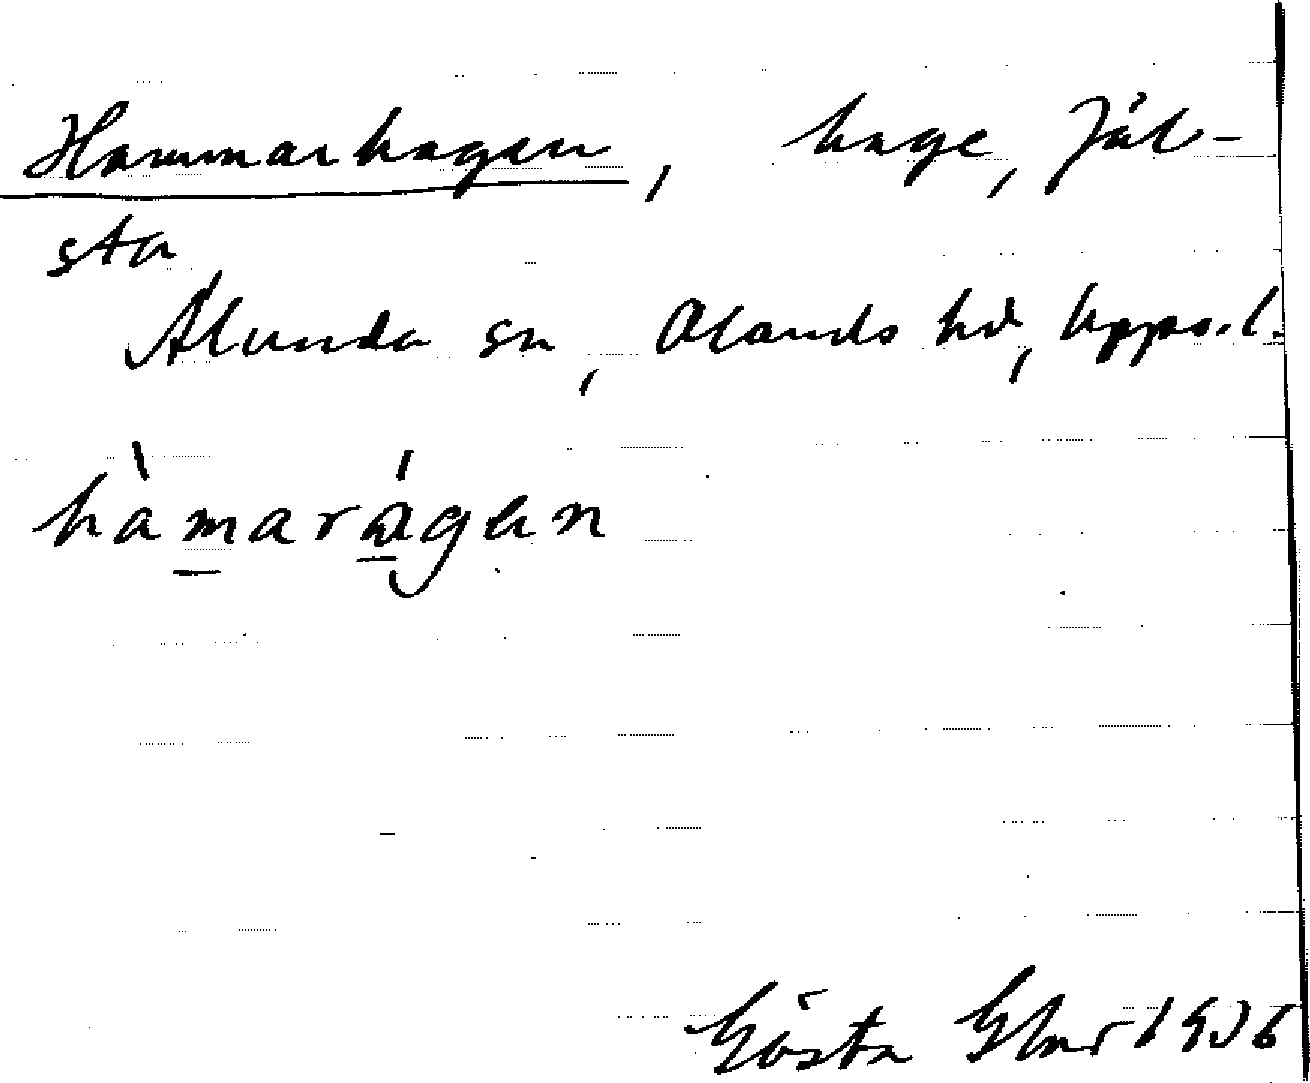 Hammarhagen, hage, Jål-
sta
Alunda sn, Olands hd, Upps. l.
hàmarágen
Gösta 1936